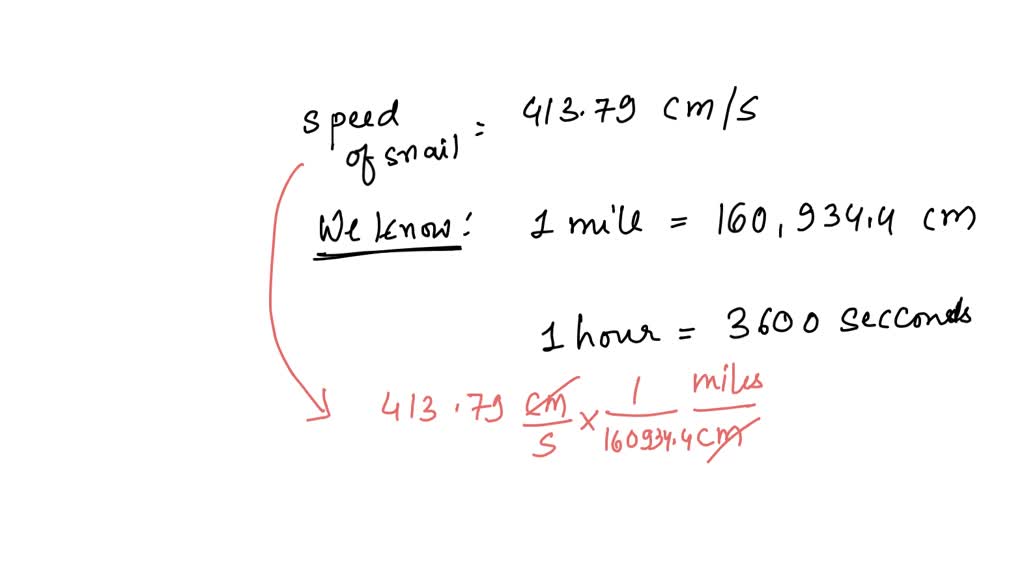 speed of snail = 413.79 cm/s
We know: 1 mile = 160,934.4 cm
1 hour = 3600 secconds
413.79 cm/s × 1/160934.4 miles/cm